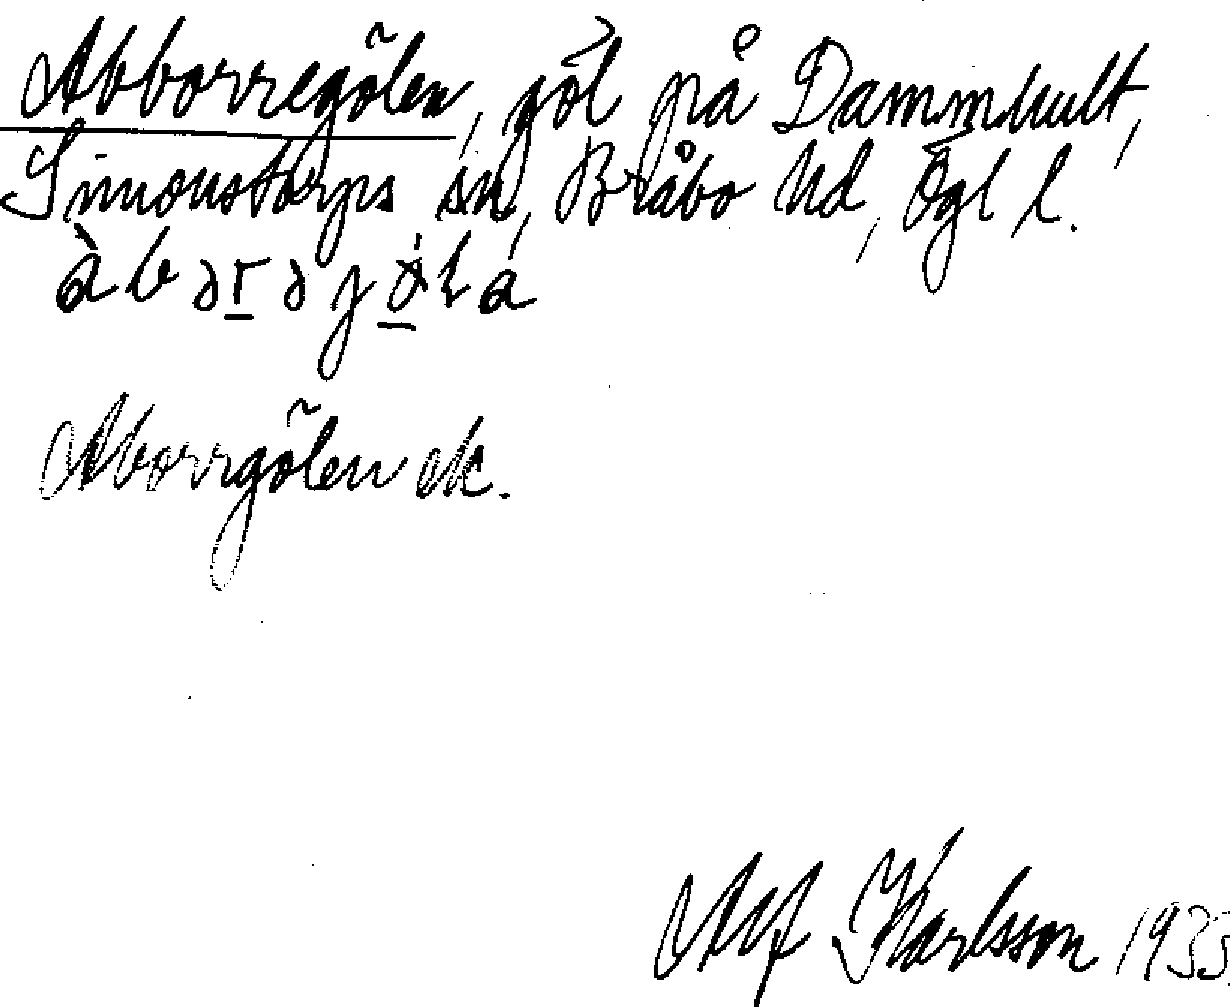 Abborregölen, göl på Dammhult,
Simonstorps sn, Bråbo hd, Ögl l.
àbərəjø̀lá
Aborrgölen ek.
Alf Karlsson 1935